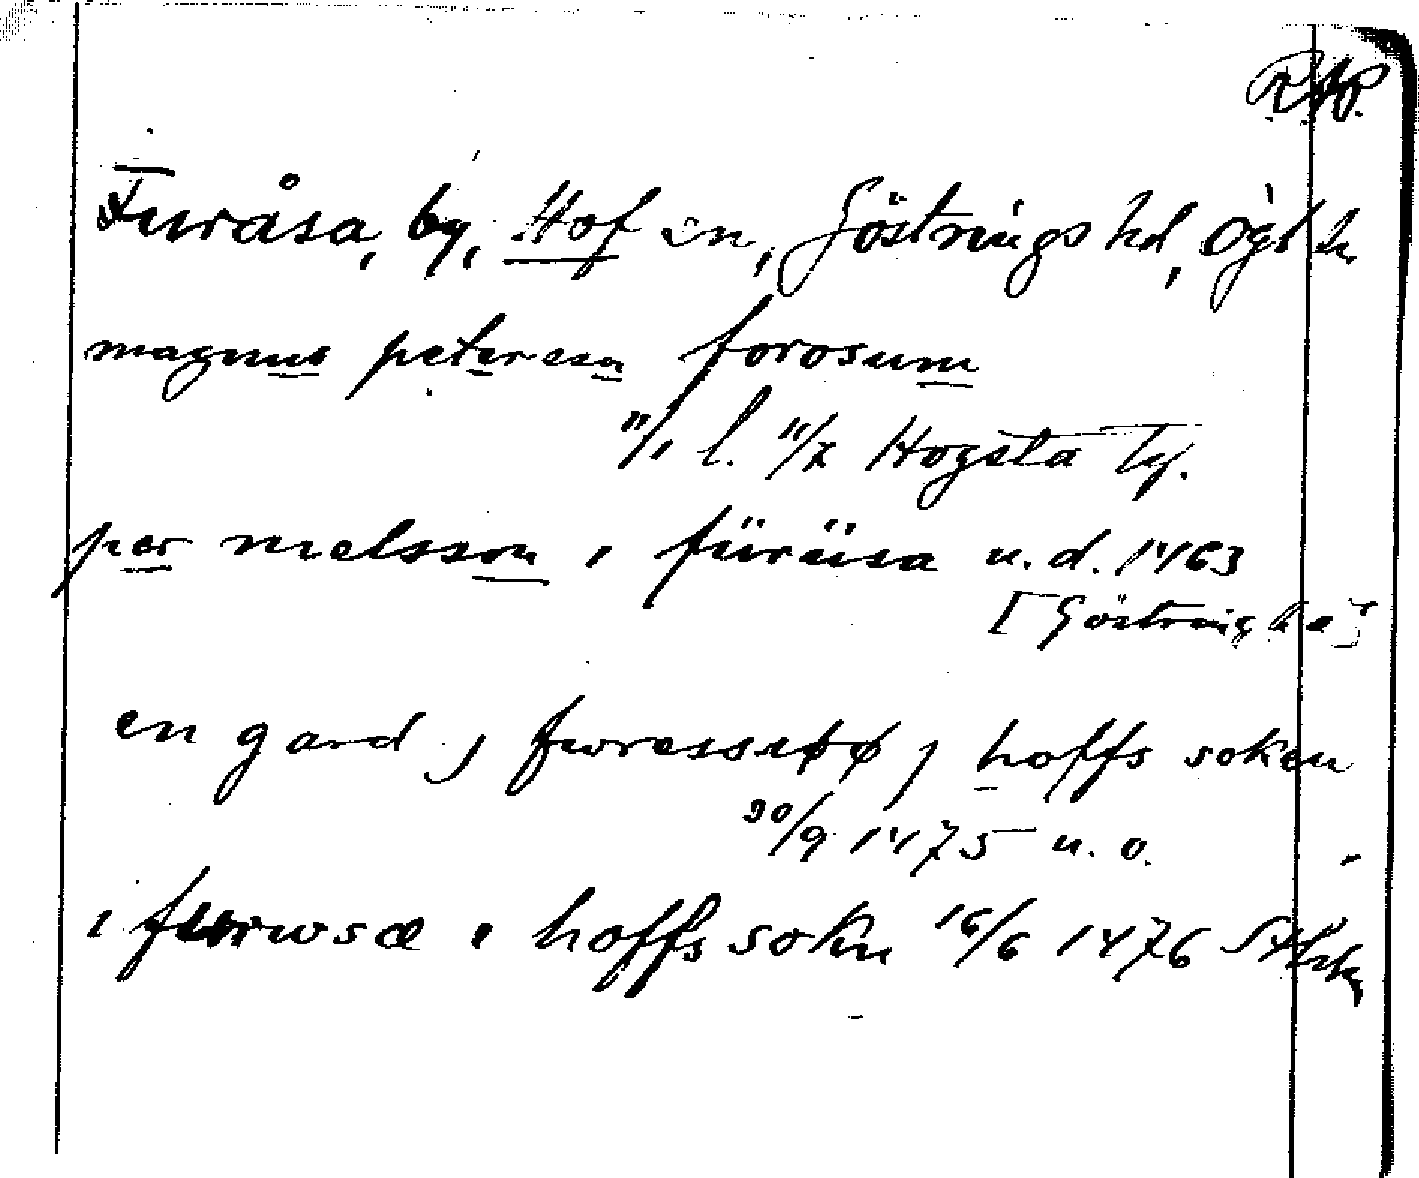 RAP.
Furåsa, by, Hof sn, Göstrings hd, Ögl
magnus peterson forosum
11/1 l. 11/7 Hogsta Ty.
per nielsson i füräsa u.d. 1463
[Göstringha]
en gard j furessøø j hoffs soken
30/9 1475 u. o.
i furwsæ i hoffs sokn 16/6 1476